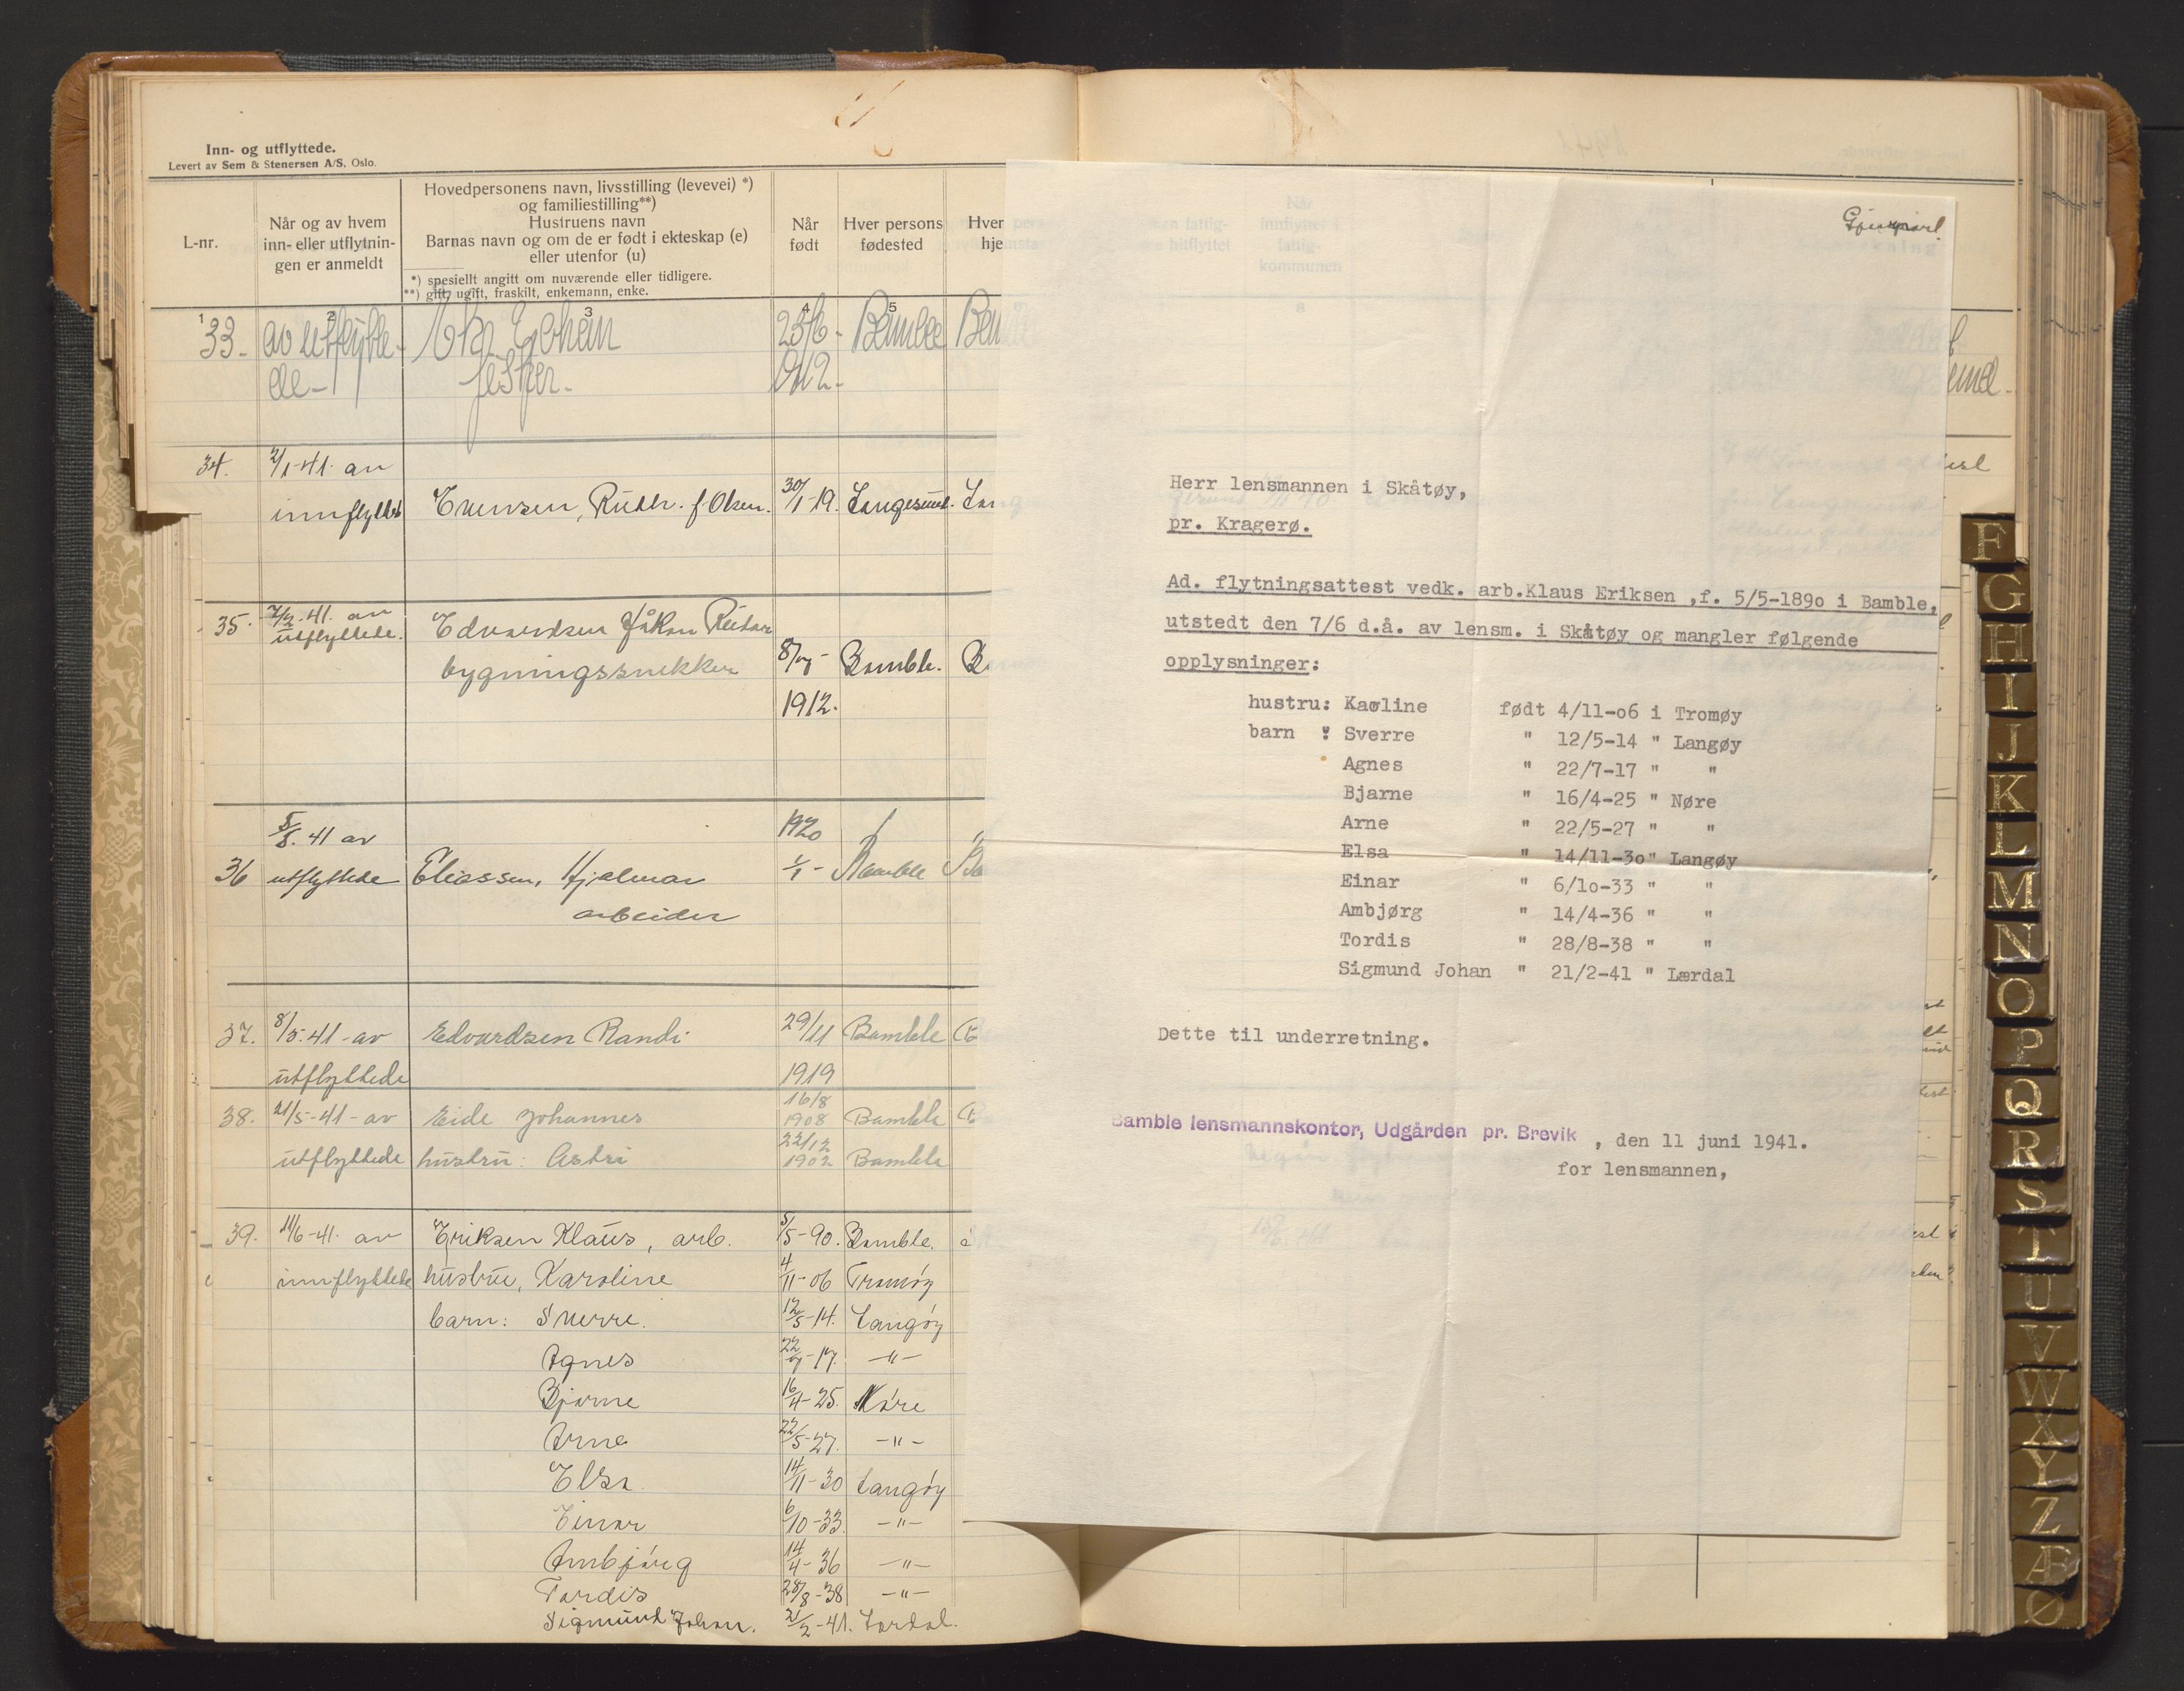 Inn- og utflyttede.
Levert av Sem & Stenersen A/S, Oslo.
L-nr.
Når og av hvem
inn- eller utflytnin-
gen er anmeldt
Hovedpersonens navn, livsstilling (levevei) *)
og familiestilling**)
Hustruens navn
Barnas navn og om de er født i ekteskap (e)
eller utenfor (u)
*) spesiellt angitt om nuværende eller tidligere.
**) gift, ugift, fraskilt, enkemann, enke.
Når
født
Hver persons
fødested
Hver
hje
1 2 3 4 5
33. av utflytte- Johan 23/6- Bamble
de- fisker. 1912-
34. 2/1-41. av
innflyttet Evensen, Ruth. f. Olsen. 30/1-19. Langesund.
35. 7/2-41. av Edvardsen Håkon Reidar
utflyttede. bygningssnekker 8/7- Bamble.
1912.
5/5. 41 av 1920
36 utflyttede Eliassen, Hjalmar 1/1- Bamble
arbeider
37. 8/5-41-av Edvardsen Randi 29/11 Bamble
utflyttede 1919
38. 21/5-41-av Eide Johannes 16/8 1908 Bamble
utflyttede hustru: Astri 22/12 1902 Bamble
39. 11/6-41. av Eriksen Klaus, arb. 5/5-90. Bamble.
innflyttede hustru, Karoline 4/11-06 Tromøy
barn: Sverre. 12/5-14. Langøy
Agnes 22/7-17. -"-
Bjarne 16/4-25. Nøre
Arne 22/5-27. -"-
Elsa 14/11-30 Langøy
Einar 6/10-33. -"-
Ambjørg 14/4-36 -"-
Tordis 28/8-38 -"-
Sigmund Johan. 21/2-41. Lærdal.
Herr lensmannen i Skåtøy,
pr. Kragerø.
Ad. flytningsattest vedk. arb.Klaus Eriksen ,f. 5/5-189o i Bamble,
utstedt den 7/6 d.å. av lensm. i Skåtøy og mangler følgende
opplysninger:
hustru: Karoline født 4/11-o6 i Tromøy
barn : Sverre " 12/5-14 " Langøy
Agnes " 22/7-17 " "
Bjarne " 16/4-25 " Nøre
Arne " 22/5-27 " "
Elsa " 14/11-3o" Langøy
Einar " 6/1o-33 " "
Ambjørg " 14/4-36 " "
Tordis " 28/8-38 " "
Sigmund Johan " 21/2-41 " Lærdal
Dette til underretning.
Bamble lensmannskontor, Udgården pr. Brevik , den 11 juni 1941.
for lensmannen,
F
G
H
I
J
K
L
M
N
O
P
Q
R
S
T
U
V
W
X
Y
Z
Æ
Ø